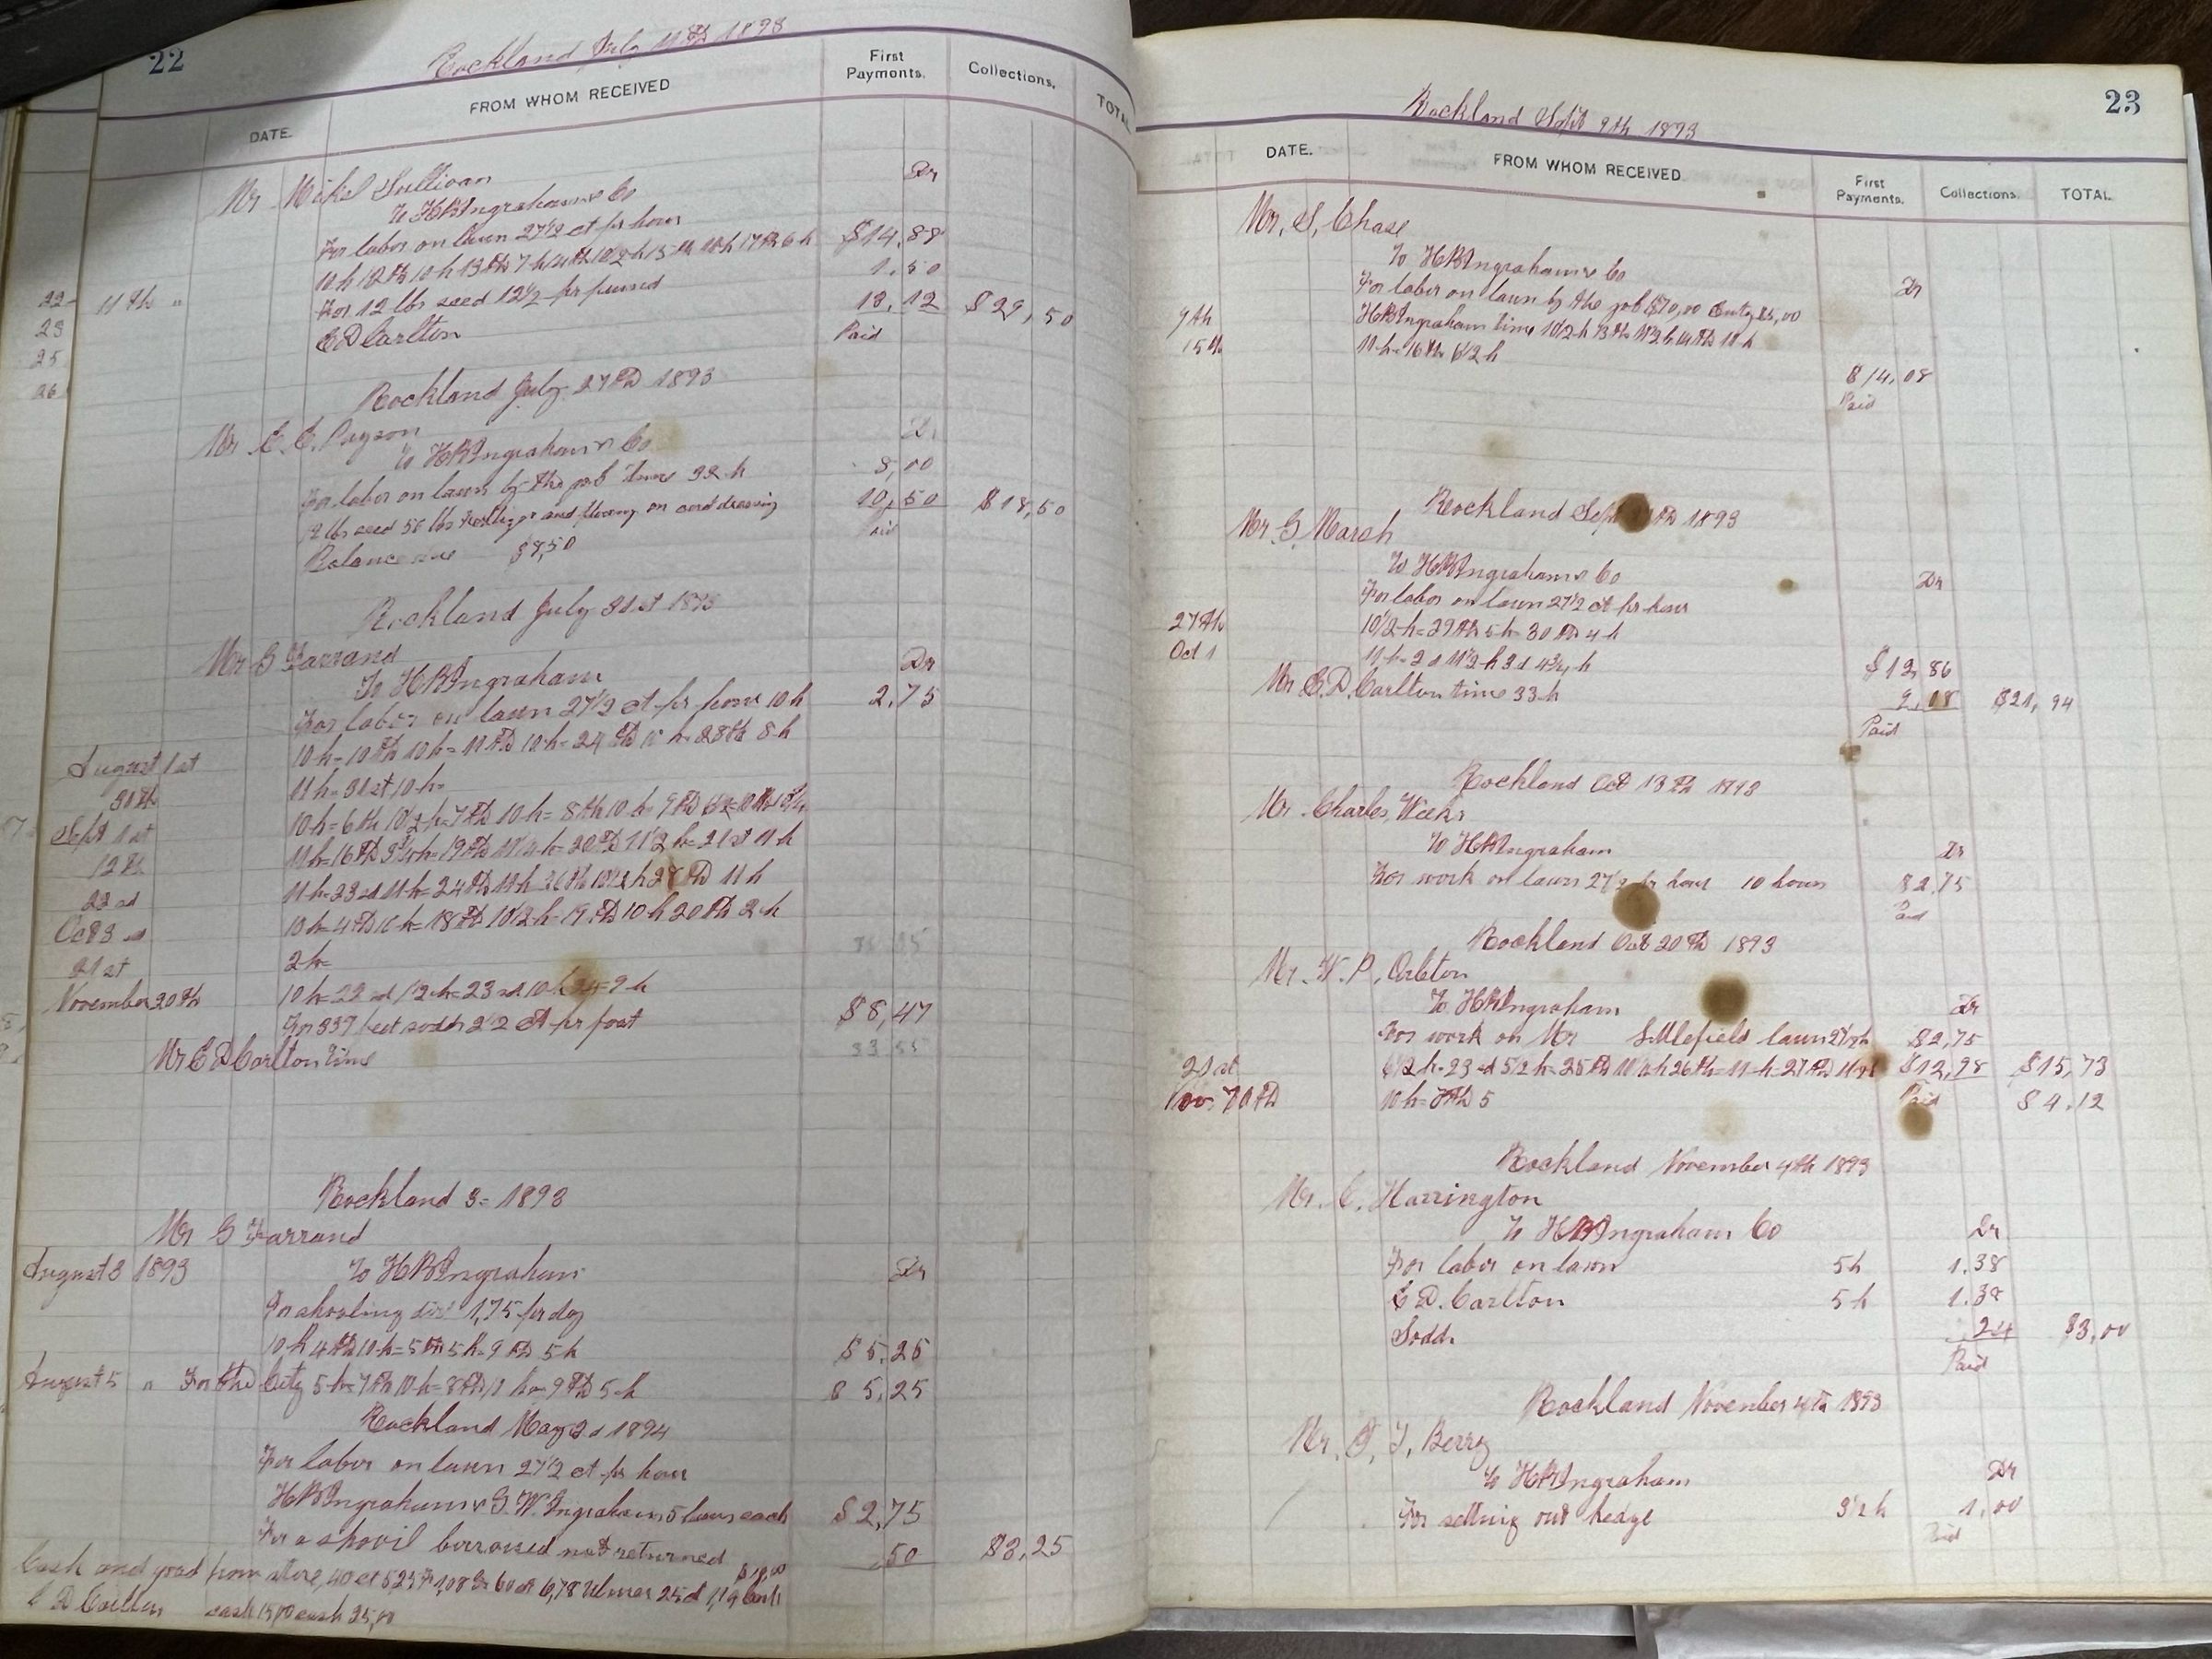 22
Rockland July 11th 1893
DATE. FROM WHOM RECEIVED First Payments. Collections. TOTAL
Mr Mikel Sullivan Dr
To HBIngraham & Co
For labor on lawn 27 1/2 ct pr hour $14,88
22 11th " 10 h 12th 10 h 13th 7 h 14th 10 1/2 h 15 17th 6 h 1.50
23 For 12 lbs seed 12 1/2 pr pound 13,12 $29,50
25 E D Carlton Paid
26
Rockland July 27th 1893
Mr E. C. Payson Dr
To HBIngraham & Co
For labor on lawn by the job time 32 h 8,00
12 lbs seed 50 lbs and on and dressing 10,50 $18,50
Balance due $8,50 Paid
Rockland July 31st 1893
Mr G Farrand Dr
To HBIngraham
For labor on lawn 27 1/2 ct pr hour 10 h 2,75
August 1st 10 h = 10th 10 h = 11th 10 h = 24th 10 h = 28th 8 h
30th 11 h = 31st 10 h =
Sept 1st 10 h = 6th 10 1/2 h = 7th 10 h = 8th 10 h = 9th
12th 11 h = 16th 9 3/4 h = 19th 11 1/4 h = 20th 11 1/2 h = 21st 11 h
22nd 11 h = 23rd 11 h = 24th 11 h 26th 28th 11 h
Oct 3rd 10 h = 4th 10 h = 18th 10 1/2 h = 19th 10 h 20th 2 h
21st 2 h =
November 20th 10 h = 22nd 12 h = 23rd 10 h 24 = 9 h
For 339 feet sodds 2 1/2 ct pr foot $8,47
Mr E D Carlton time
Rockland 3 = 1893
Mr G Farrand
August 3 1893 To HBIngraham Dr
For shovling dirt 1,75 pr day
10 h 4th 10 h = 5th 5 h = 9th 5 h $5.25
August 5 " For the City 5 h = 7th 10 h = 8th h = 9th 5 h $5.25
Rockland May 2d 1894
For labor on lawn 27 1/2 ct pr hour
HBIngraham & G. W. Ingraham 5 hours each $2,75
For a shovil borrowed not returned ,50 $3,25
Cash and good from store, 40 ct 60 ct 6,78
E D Carlton cash 15,00 cash 25,00
23
Rockland Sept 9th 1893
DATE. FROM WHOM RECEIVED First Payments. Collections. TOTAL
Mr, S, Chase
To HBIngraham & Co
For labor on lawn by the job $70,00 Dr
9th HBIngraham time 10 1/2 h 13th 11 1/2 h 14th 11 h
15th 11 h = 16th 6 1/2 h
$14,08
Paid
Rockland Sept 1893
Mr. G. Marsh
To HBIngraham & Co Dr
For labor on lawn 27 1/2 ct pr hour
27th 10 1/2 h = 29th 5 h = 30th 4 h
Oct 1 11 h = 2d 11 1/2 h 3d 4 3/4 h $12,86
Mr E. D. Carlton time 33 h 9,08 $21,94
Paid
Rockland Oct 13th 1893
Mr. Charles, Weeks
To HBIngraham Dr
For work on lawn 27 1/2 pr hour 10 hours $2,75
Paid
Rockland Oct 20th 1893
Mr. W. P, Orbeton
To HBIngraham Dr
For work on Mr Littlefield lawn $2,75
21st 6 1/2 h = 23rd 5 1/2 h = 25th 26th = 11 h = 27th $12,98 $15,73
Nov, 10 h = 7th 5 Paid $4.12
Rockland November 4th 1893
Mr. C. Harrington
To HBIngraham Co Dr
For labor on lawn 5 h 1.38
E D. Carlton 5 h 1.38
Sodds .24 $3,00
Paid
Rockland November 4th 1893
Mr. B, T, Berry
To HBIngraham Dr
For setting out hedge 3 1/2 h 1,00
Paid